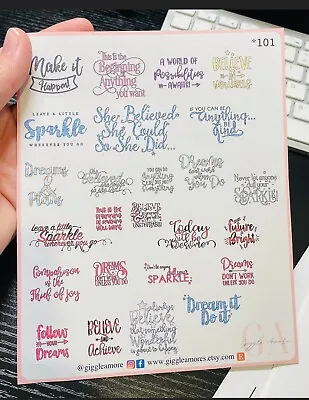 *101
Make it
Happen!
This is the
Beginning
of
Anything
you want
A WORLD OF
Possibilities
AWAITS!
BELIEVE
IN
YOURSELF
LEAVE A LITTLE
Sparkle
WHEREVER YOU GO
She Believed
She Could
So She Did...
IF YOU CAN BE
Anything...
BE
KIND
Dreams
&
Plans
She
believed
she could
so she did
YOU CAN DO
Anything
Dreams
don't work
unless
You Do
Never let anyone
dull your
SPARKLE!
leave a little
Sparkle
wherever you go
THIS IS THE
BEGINNING
OF ANYTHING
YOU WANT
BELIEVE
Today
will be
Awesome
Future
Bright
Comparison
is the
Thief of joy
DREAMS
DON'T WORK
UNLESS YOU DO
Don't let anyone
dull your
SPARKLE
Dreams
DON'T WORK
UNLESS YOU DO
follow
YOUR
Dreams
BELIEVE
AND
Achieve
Always
Believe
that something
Wonderful
is going to happen
Dream it
Do it
GA
giggle amore
@giggleamore
www.giggleamores.etsy.com
E